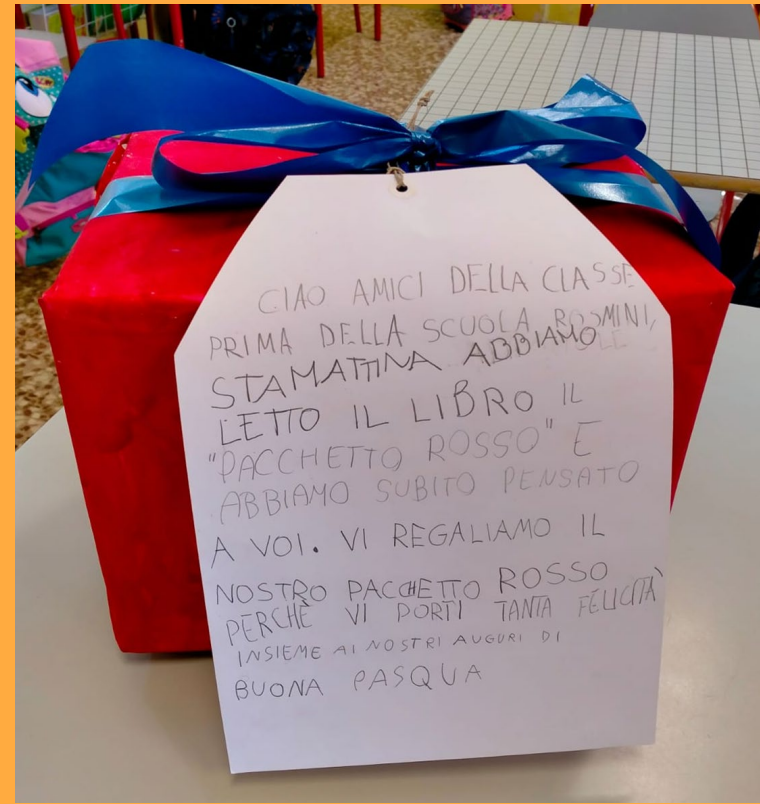 CIAO AMICI DELLA CLASSE
PRIMA DELLA SCUOLA ROSMINI,
STAMATTINA ABBIAMO
LETTO IL LIBRO IL
"PACCHETTO ROSSO" E
ABBIAMO SUBITO PENSATO
A VOI. VI REGALIAMO IL
NOSTRO PACCHETTO ROSSO
PERCHÈ VI PORTI TANTA FELICITÀ
INSIEME AI NOSTRI AUGURI DI
BUONA PASQUA